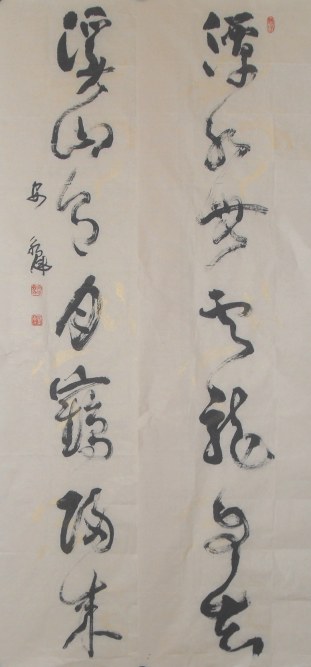 潭水無雲龍自在
溪山有月鶴歸來